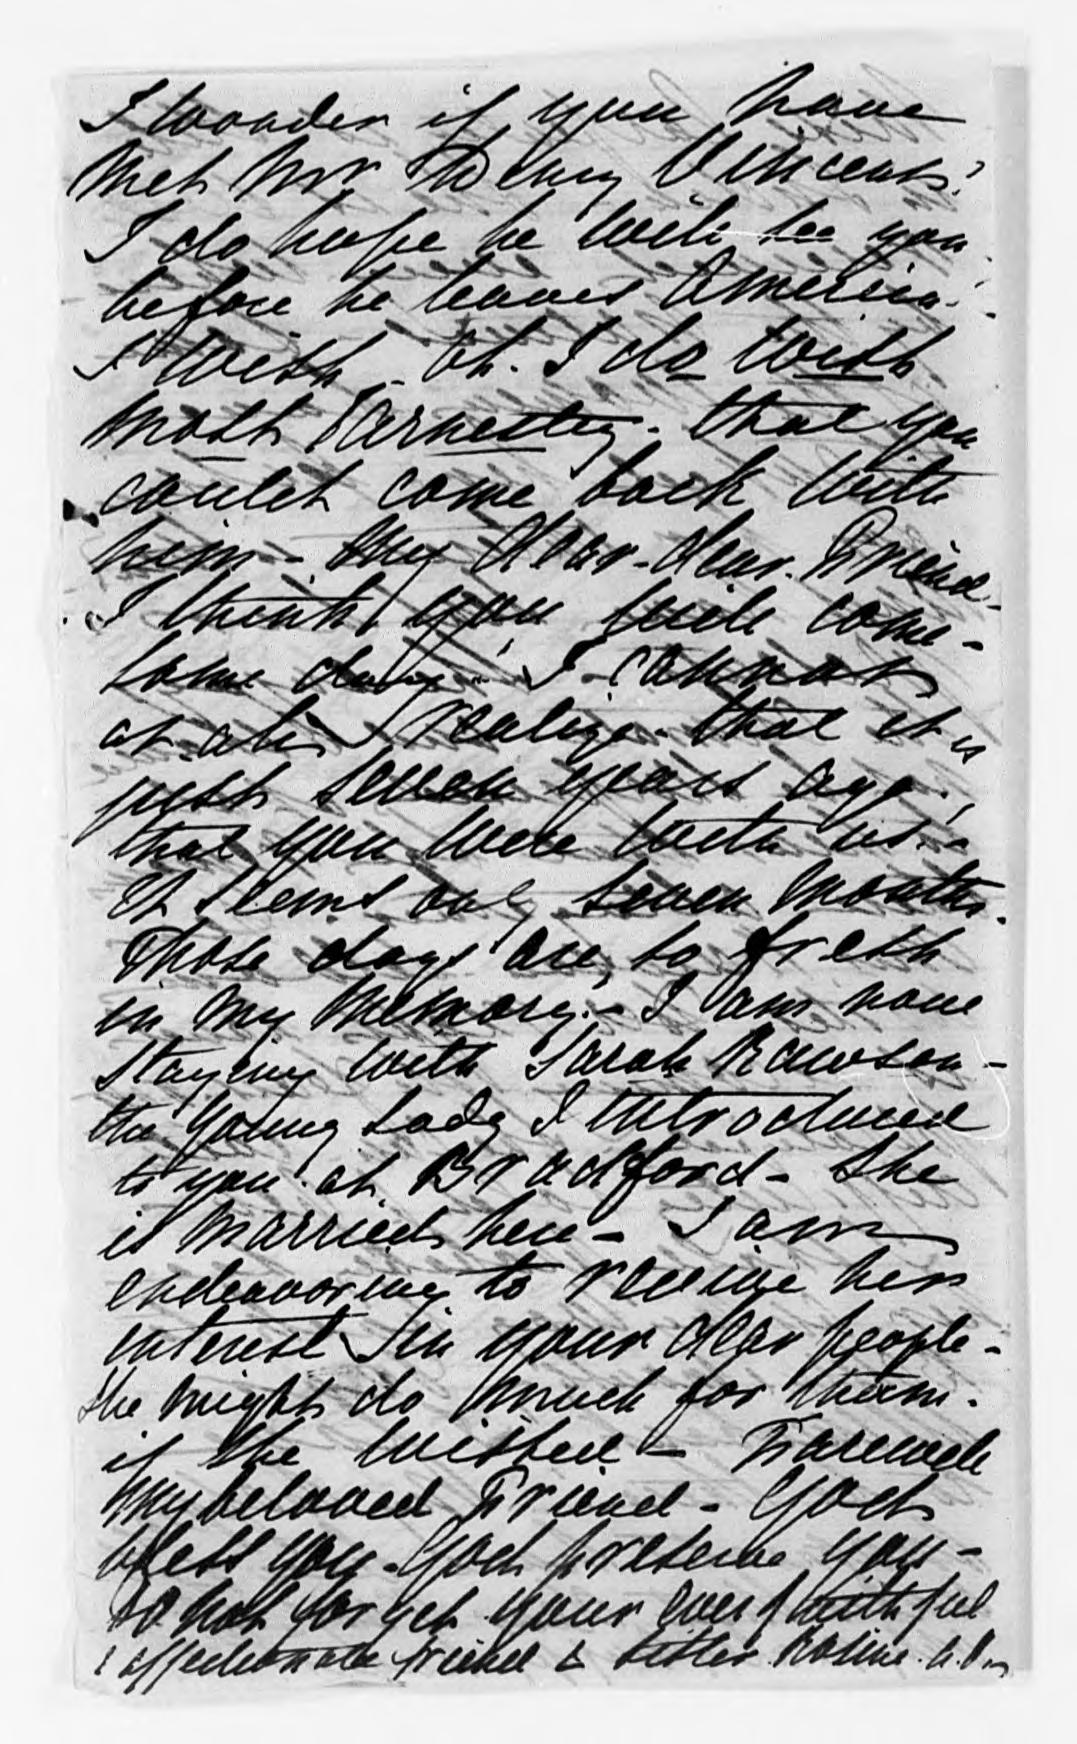 I wonder if you have
met Mr Henry Vincent?
I do hope he will see you
before he leaves America.
I wish - oh. I do wish
most earnestly - that you
could come back with
him - My dear - dear Friend -
I think you will come -
some day. I cannot
at all realize - that it is
just seven years ago,
that you were with us. -
It seems only seven months.
Those days are so fresh
in my memory. - I am now
staying with Sarah Rawson -
the young lady I introduced
to you at Bradford - She
is married here - I am
endeavoring to revive her
interest in your dear people -
She might do much for them.
if she wished - Farewell
my beloved Friend - God
bless you - God preserve you -
Do not forget your ever faithful
& affectionate friend & sister Rosine.